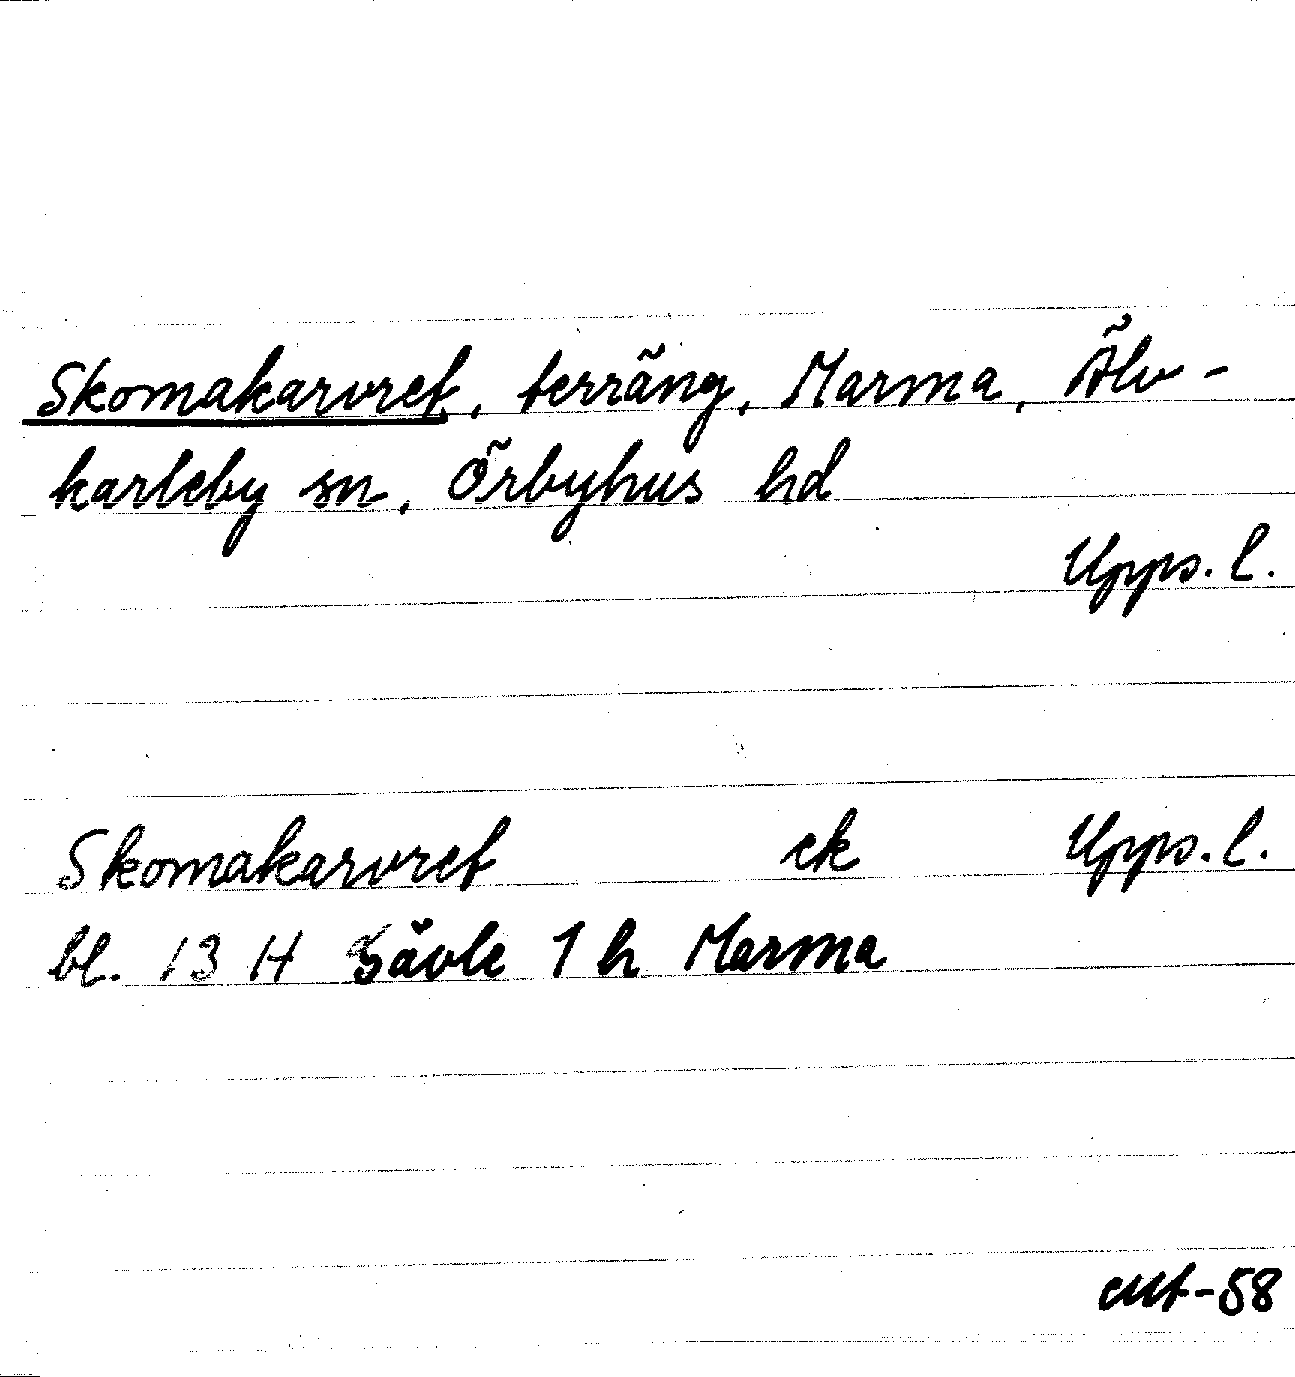 Skomakarvret, terräng, Marma, Älv-
karleby sn, Örbyhus hd
Upps. l.
Skomakarvret ek Upps. l.
bl. 13 H Gävle 1 h Marma
-58